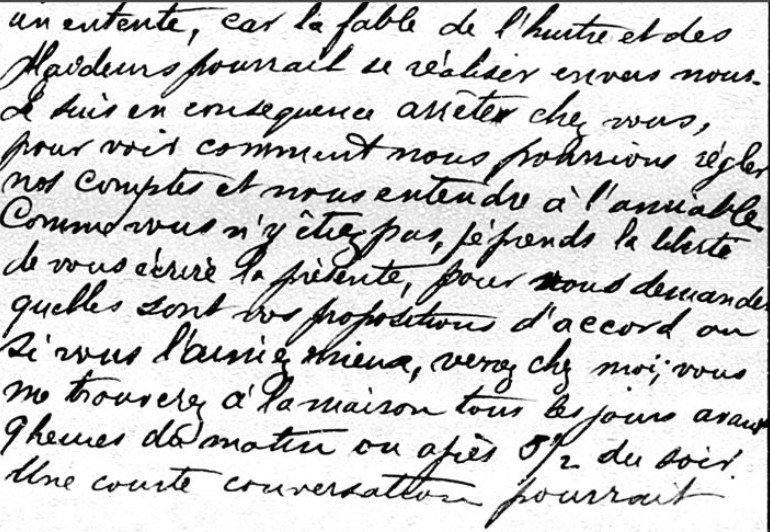 un entente, car la fable de l'huitre et des
Plaideurs pourrait se réaliser envers nous.
Je suis en conséquence arrêter chez vous,
pour voir comment nous pourrions régler
nos comptes et nous entendre à l'amiable.
Comme vous n'y étiez pas, je prends la liberté
de vous écrire la présente, pour vous demander
quelles sont vos propositions d'accord ou
si vous l'aimez mieux, venez chez moi; vous
me trouverez à la maison tous les jours avant
9 heures du matin ou après 5 1/2 du soir.
Une courte conversation pourrait